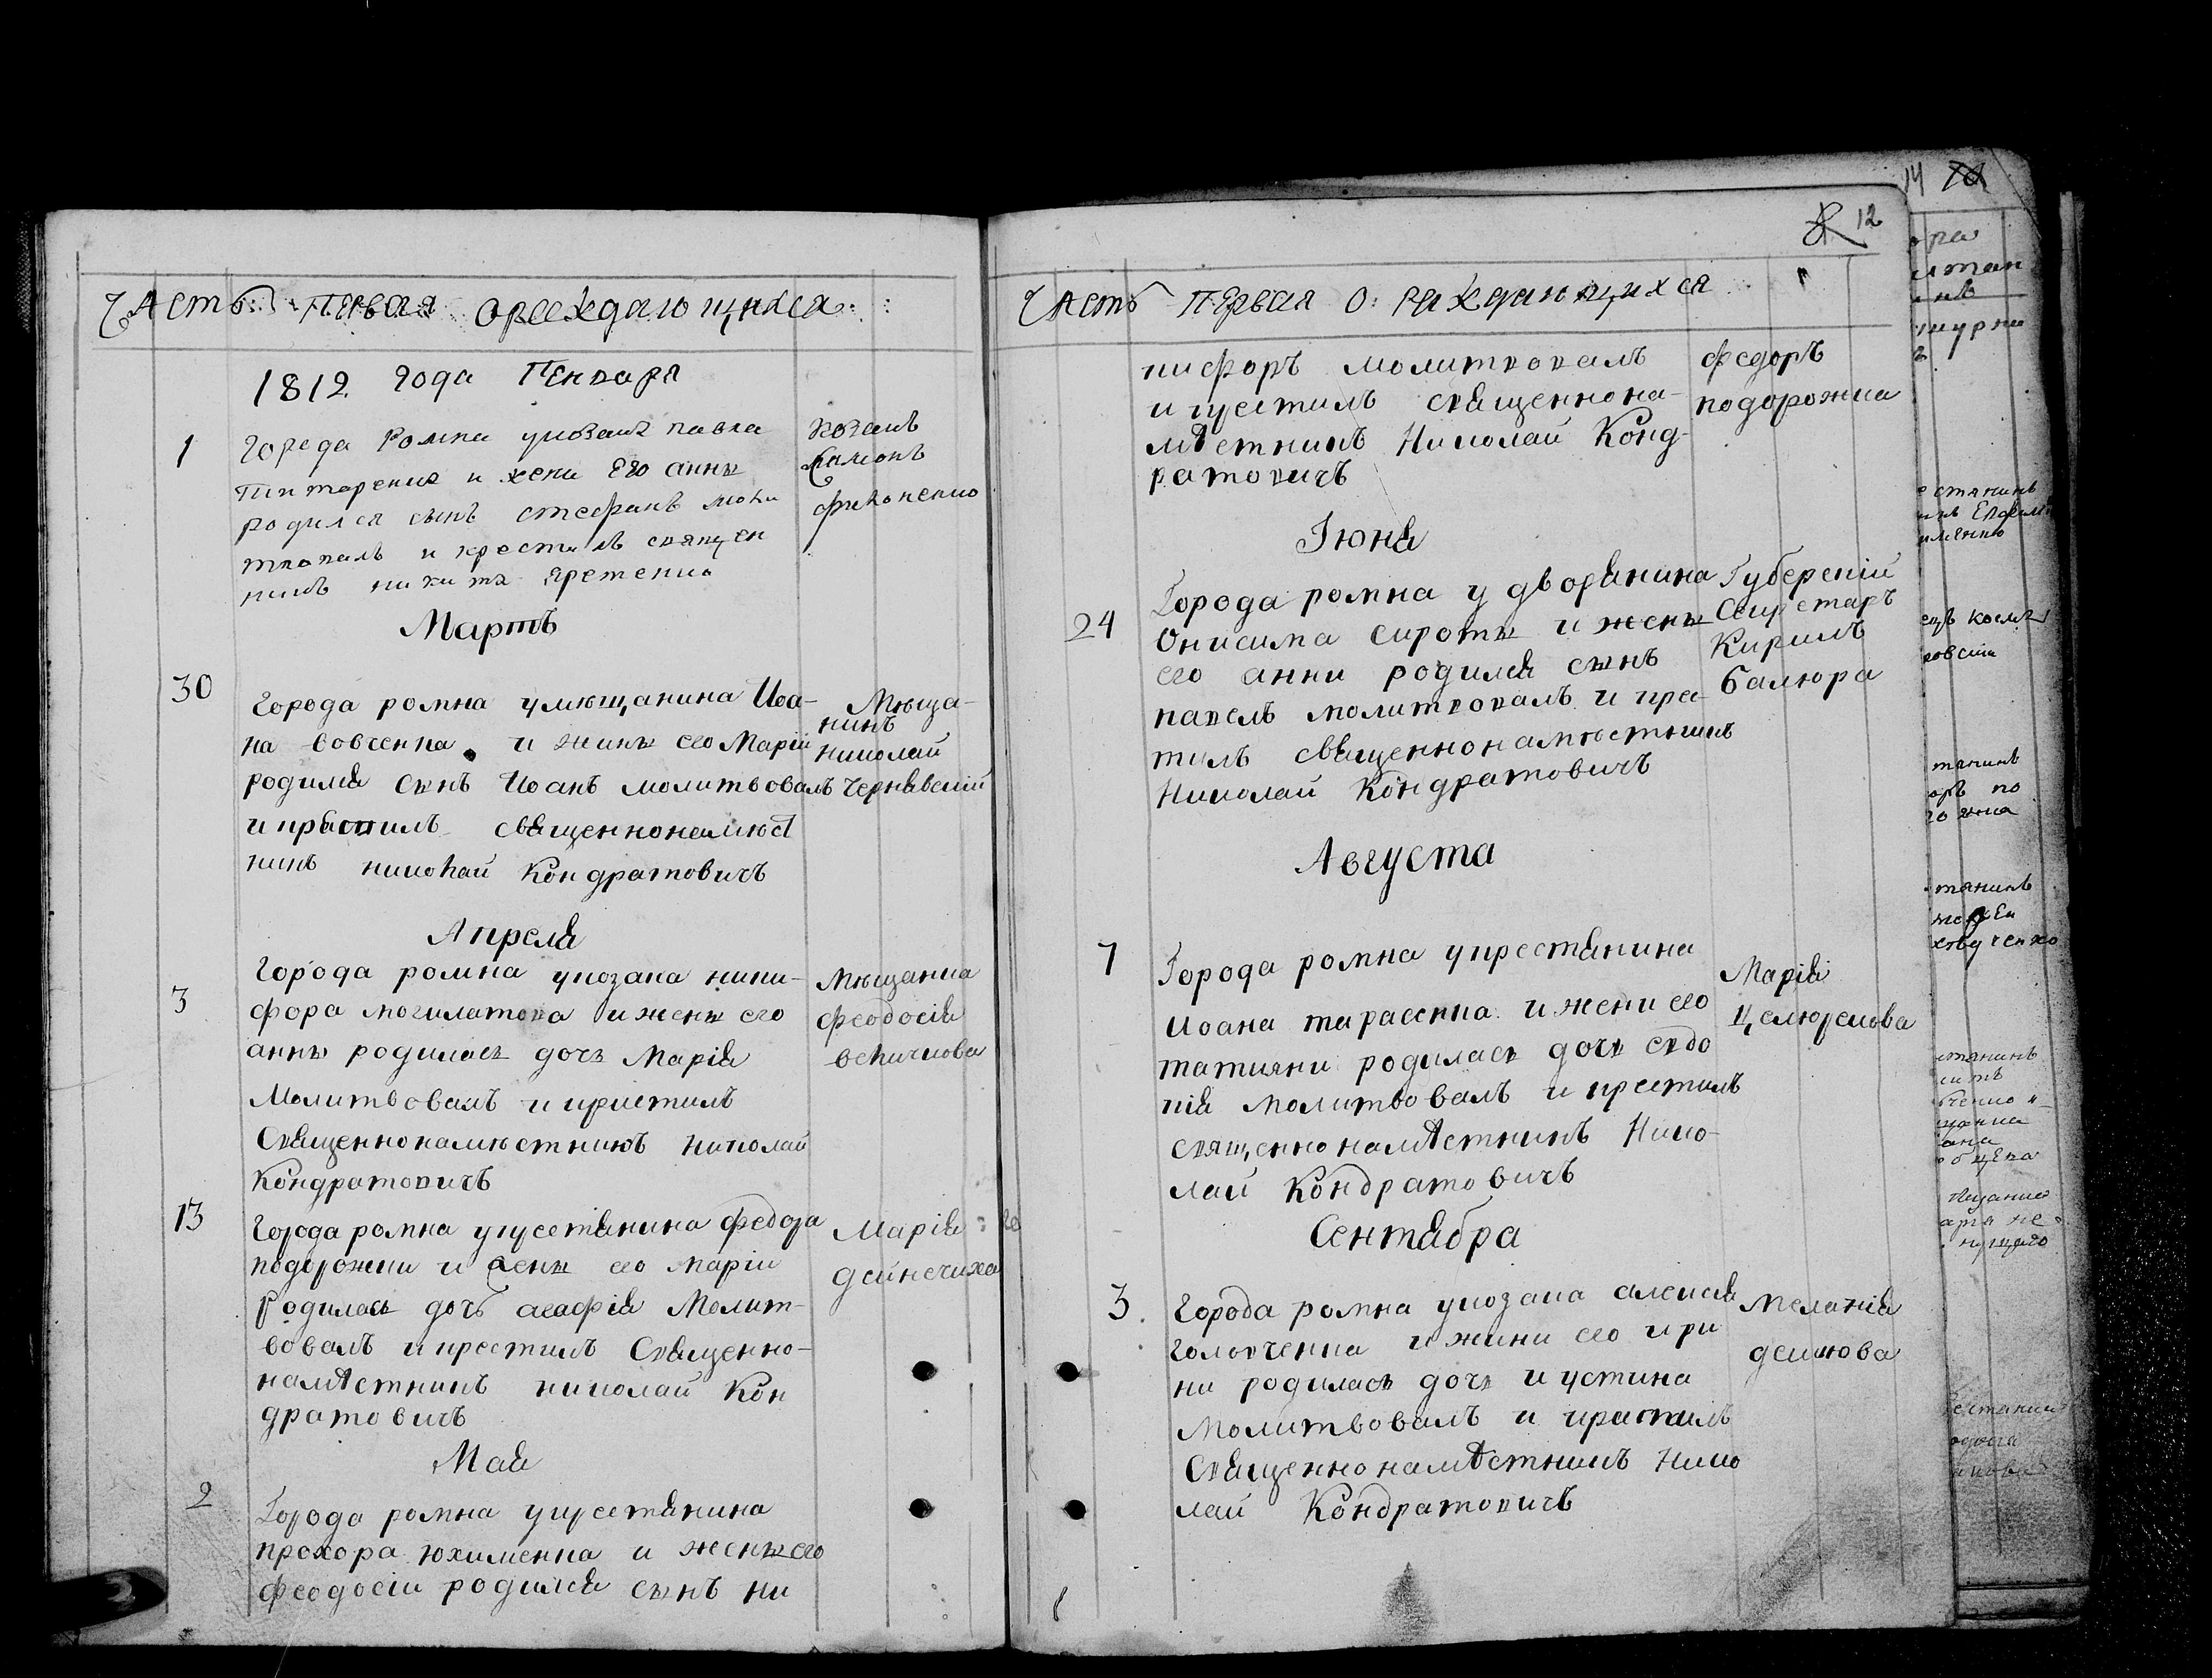 Часть первая о раждающихся
1812 года Генваря
1
Города Ромна у козака павла
и жени Его анны
родился сынъ стефанъ моли
твовалъ и крестилъ священ
никъ никита Яременко
козакъ
Мартъ
30
Города ромна умѣщанина Иоа-
на вовченка и жины его Маріи
родился сынъ Иоанъ молитвовалъ
и крестилъ священнонамѣст
никъ николай Кондратовичъ
Мѣща-
нинъ
николай
Чернявский
Апреля
3
Города ромна укозака ники-
фора могилатова и жены его
анны родилась дочь Марія
Молитвовалъ и кристилъ
Священнонамѣстникъ николай
Кондратовичъ
Мѣщанка
феодосія
величкова
13
Города ромна укрестянина федора
подорожки и жены его Маріи
Родилась дочь агафія Молит-
вовалъ и крестилъ Священно-
намѣстникъ николай Кон
дратовичъ
Марія
дейнечиха
Мая
2
Города ромна укрестянина
прохора юхименка и жены его
феодосіи родился сынъ ни
12
Часть Первая о раждающихся
кифоръ молитвовалъ
и крестилъ священнона-
мѣстникъ Николай Конд-
ратовичъ
федоръ
подорожка
Іюня
24
Города ромна у дворянина
Онисима Сироты и жены
его анни родился сынъ
павелъ молитвовалъ и кре-
тилъ священнонамѣстникъ
Николай Кондратовичъ
Губерскій
Секретаръ
Кирилъ
балюра
Августа
7
Города ромна укрестянина
Иоана тарасенка и жени его
татияни родилась дочь Евдо
кія молитвовалъ и крестилъ
священнонамѣстникъ Нико-
лай Кондратовичъ
Марія
Сентября
3.
Города ромна укозака алексія
Головченка и жини его ири
ни родилась дочь иустина
Молитвовалъ и крестилъ
Священнонамѣстникъ Нико
лай Кондратовичъ
Меланія
14